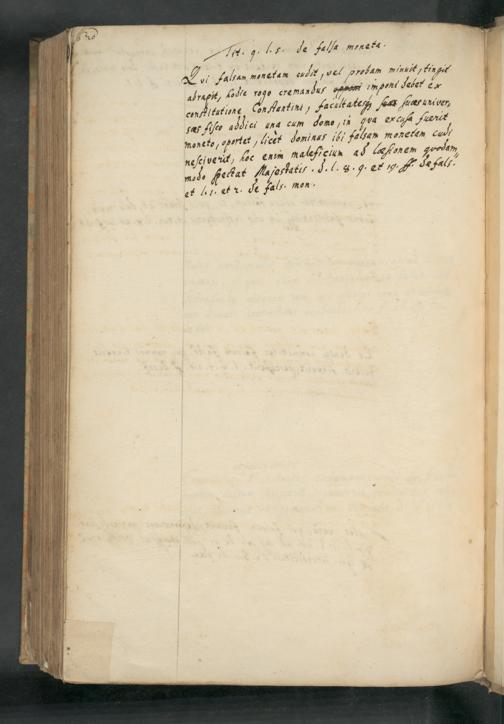 Tit. q. l. s. de falsa moneta.
Qui falsam monetam cudit, vel probam minuit, tingit
abrapit, hodie rogo cremandus imponi debet ex
constitutione Constantini, facultatesq suas suæ univer,
sæs fisco addici una cum domo, in qua excusa fuerit
moneto, oportet, licet dominus ibi falsam monetam cudi
nesciverit, hoc enim maleficium ad læsionem quodam,,
modo spectat Majestatis. d. l. 8. 9. et 19. ff. de fals.,,
et l. 1. et 2. de fals. mon.